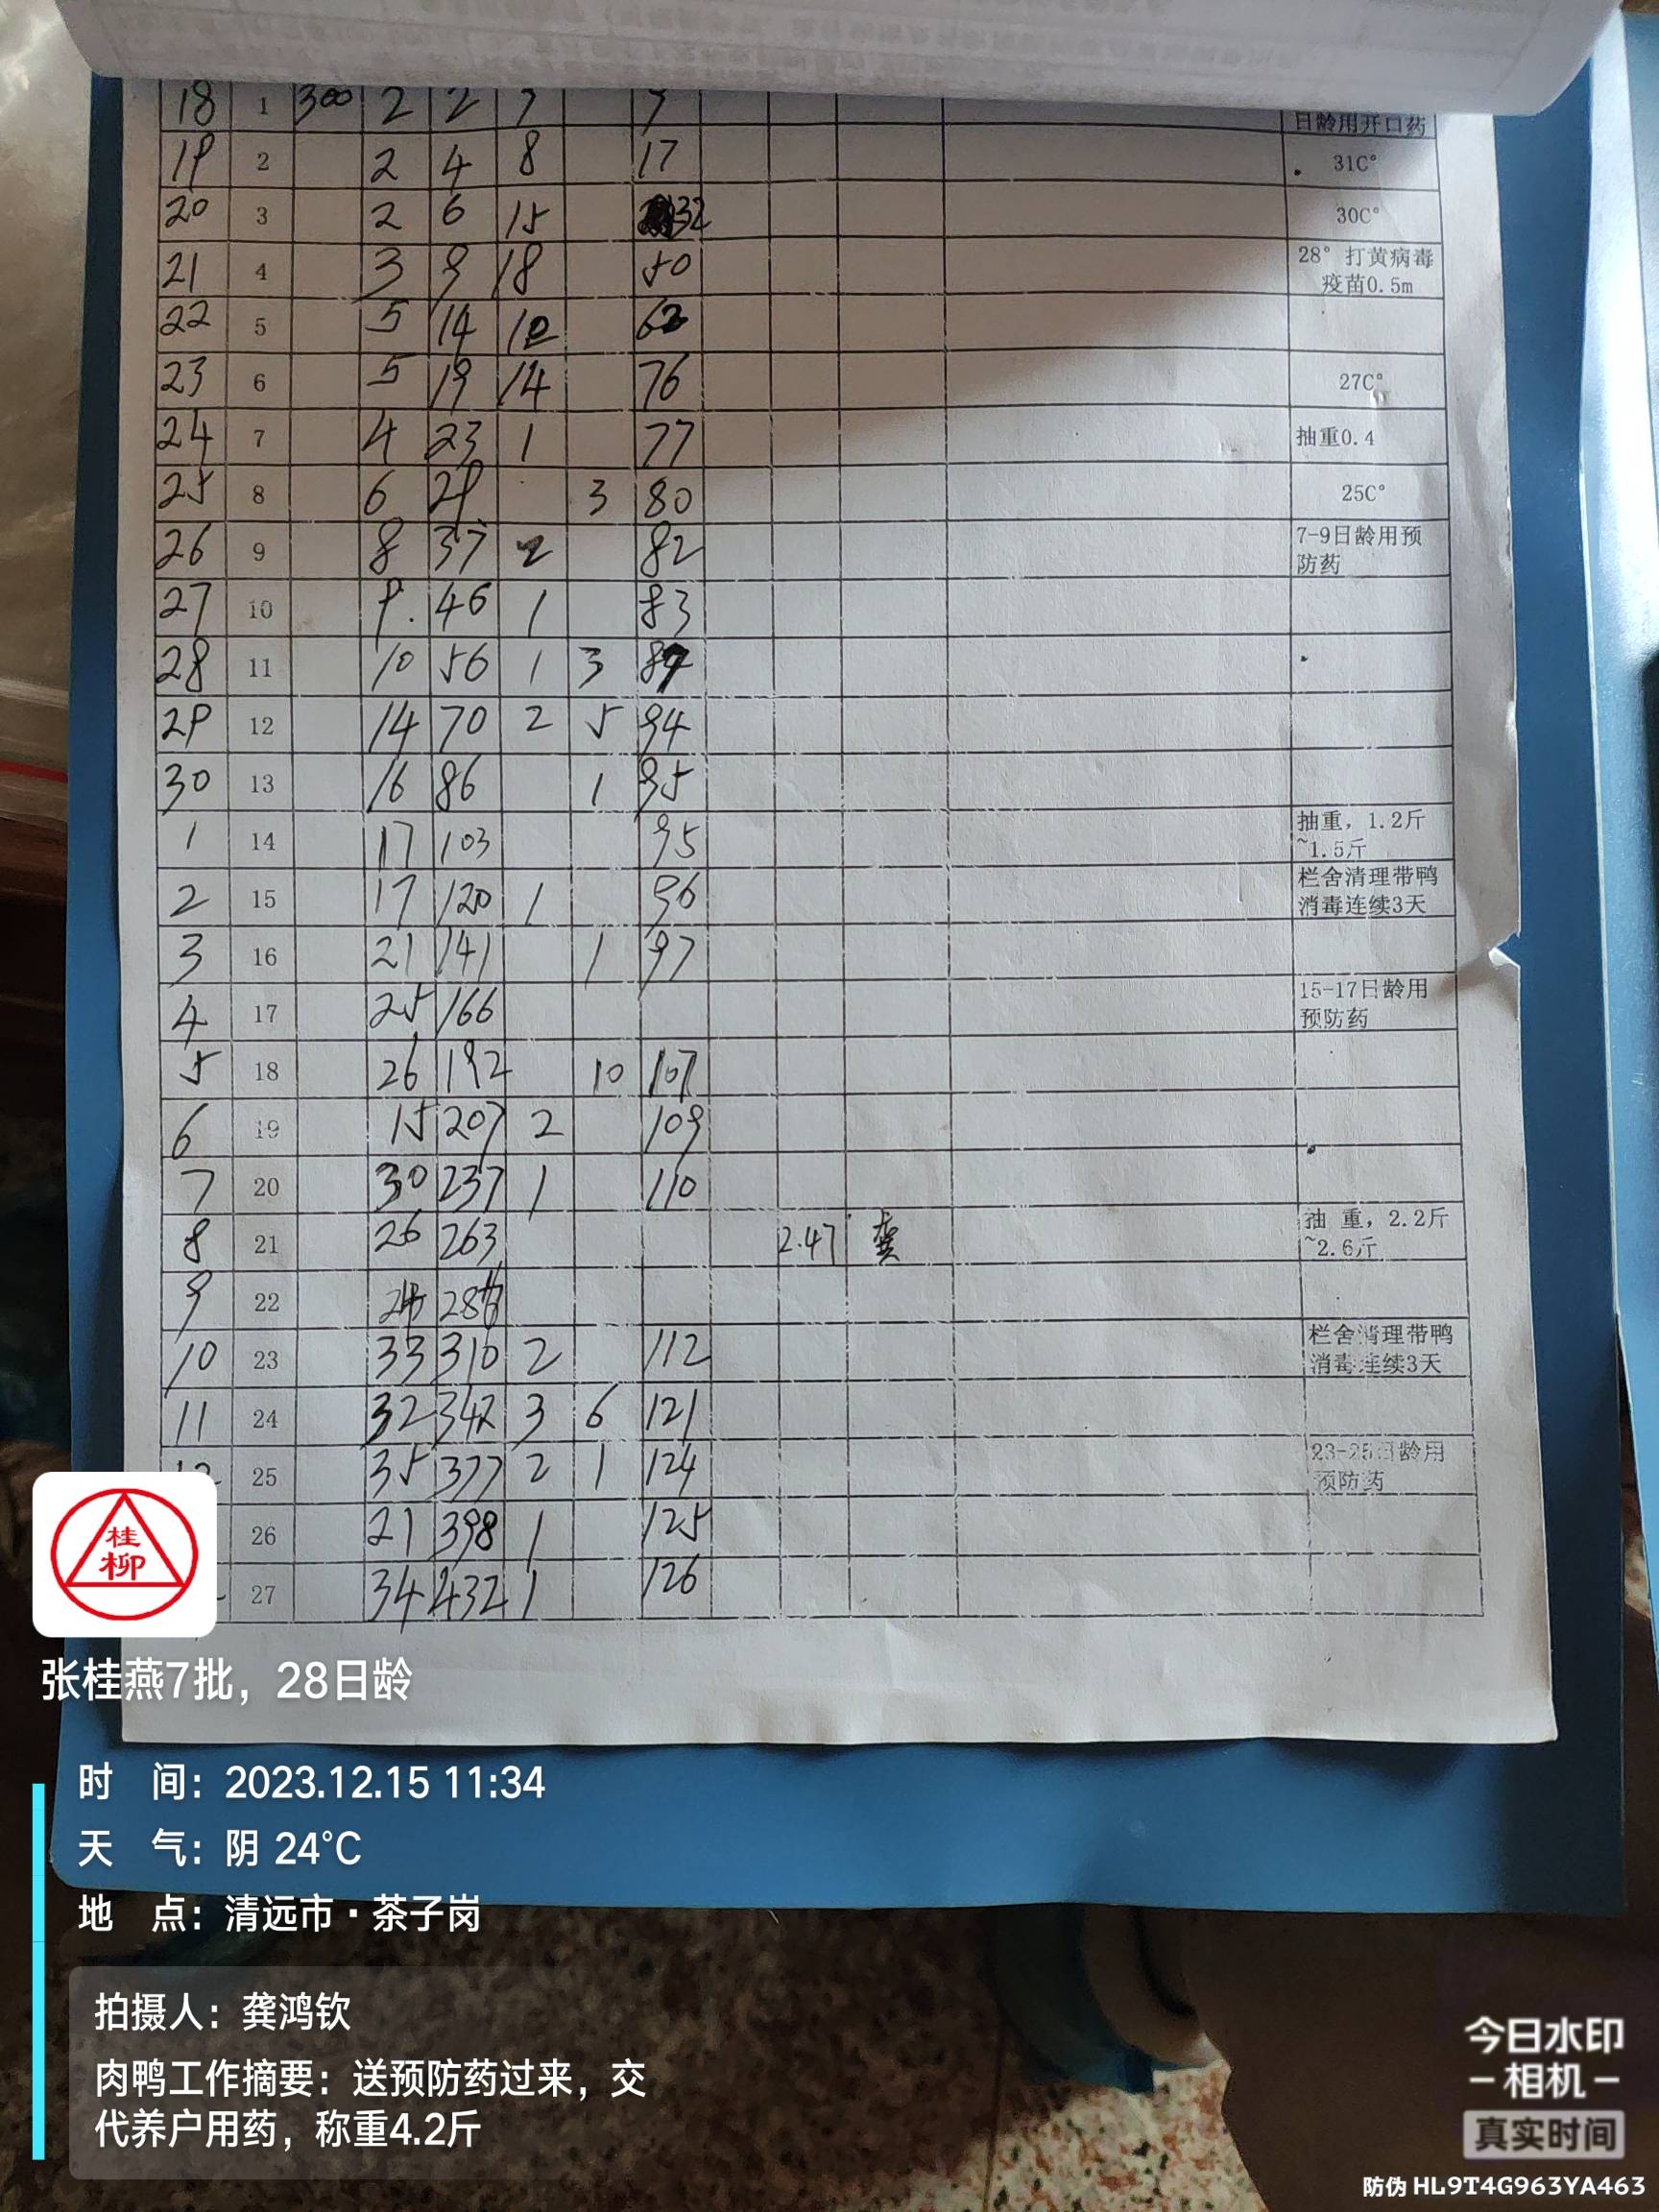 18 1 300 2 2 7 7 日龄用开口药
19 2 2 4 8 17 31C°
20 3 2 6 15 32 30C°
21 4 3 9 18 50 28° 打黄病毒
疫苗0.5m
22 5 5 14 12 62
23 6 5 19 14 76 27C°
24 7 4 23 1 77 抽重0.4
25 8 6 29 3 80 25C°
26 9 8 37 2 82 7-9日龄用预
防药
27 10 9. 46 1 83
28 11 10 56 1 3 87
29 12 14 70 2 5 94
30 13 16 86 1 95
1 14 17 103 95 抽重，1.2斤
~1.5斤
2 15 17 120 1 96 栏舍清理带鸭
消毒连续3天
3 16 21 141 1 97
4 17 25 166 15-17日龄用
预防药
5 18 26 192 10 107
6 19 15 207 2 109
7 20 30 237 1 110
8 21 26 263 2.47 龚 抽 重，2.2斤
~2.6斤
9 22
10 23 33 310 2 112 栏舍清理带鸭
消毒连续3天
11 24 32 342 3 6 121
12 25 35 377 2 1 124 23-25日龄用
预防药
26 21 398 1 125
27 34 432 1 126
桂
柳
张桂燕7批，28日龄
时 间：2023.12.15 11:34
天 气：阴 24°C
地 点：清远市·茶子岗
拍摄人：龚鸿钦
肉鸭工作摘要：送预防药过来，交
代养户用药，称重4.2斤
今日水印
-相机-
真实时间
防伪 HL9T4G963YA463